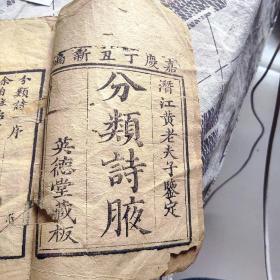 嘉慶丁丑新鐫
潛江黃老夫子鑒定
分類詩腋
英德堂藏板
分類詩 序